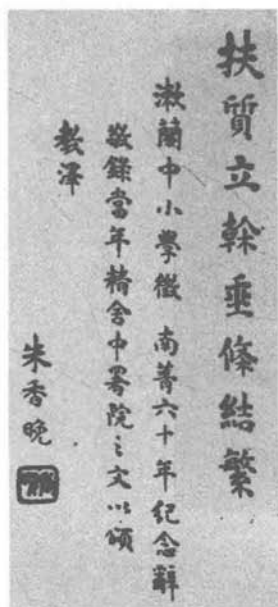 扶質立幹垂條結繁
漱蘭中小學徵 南菁六十年紀念辭
敬錄當年精舍中署院之文以頌
教澤
朱香晚